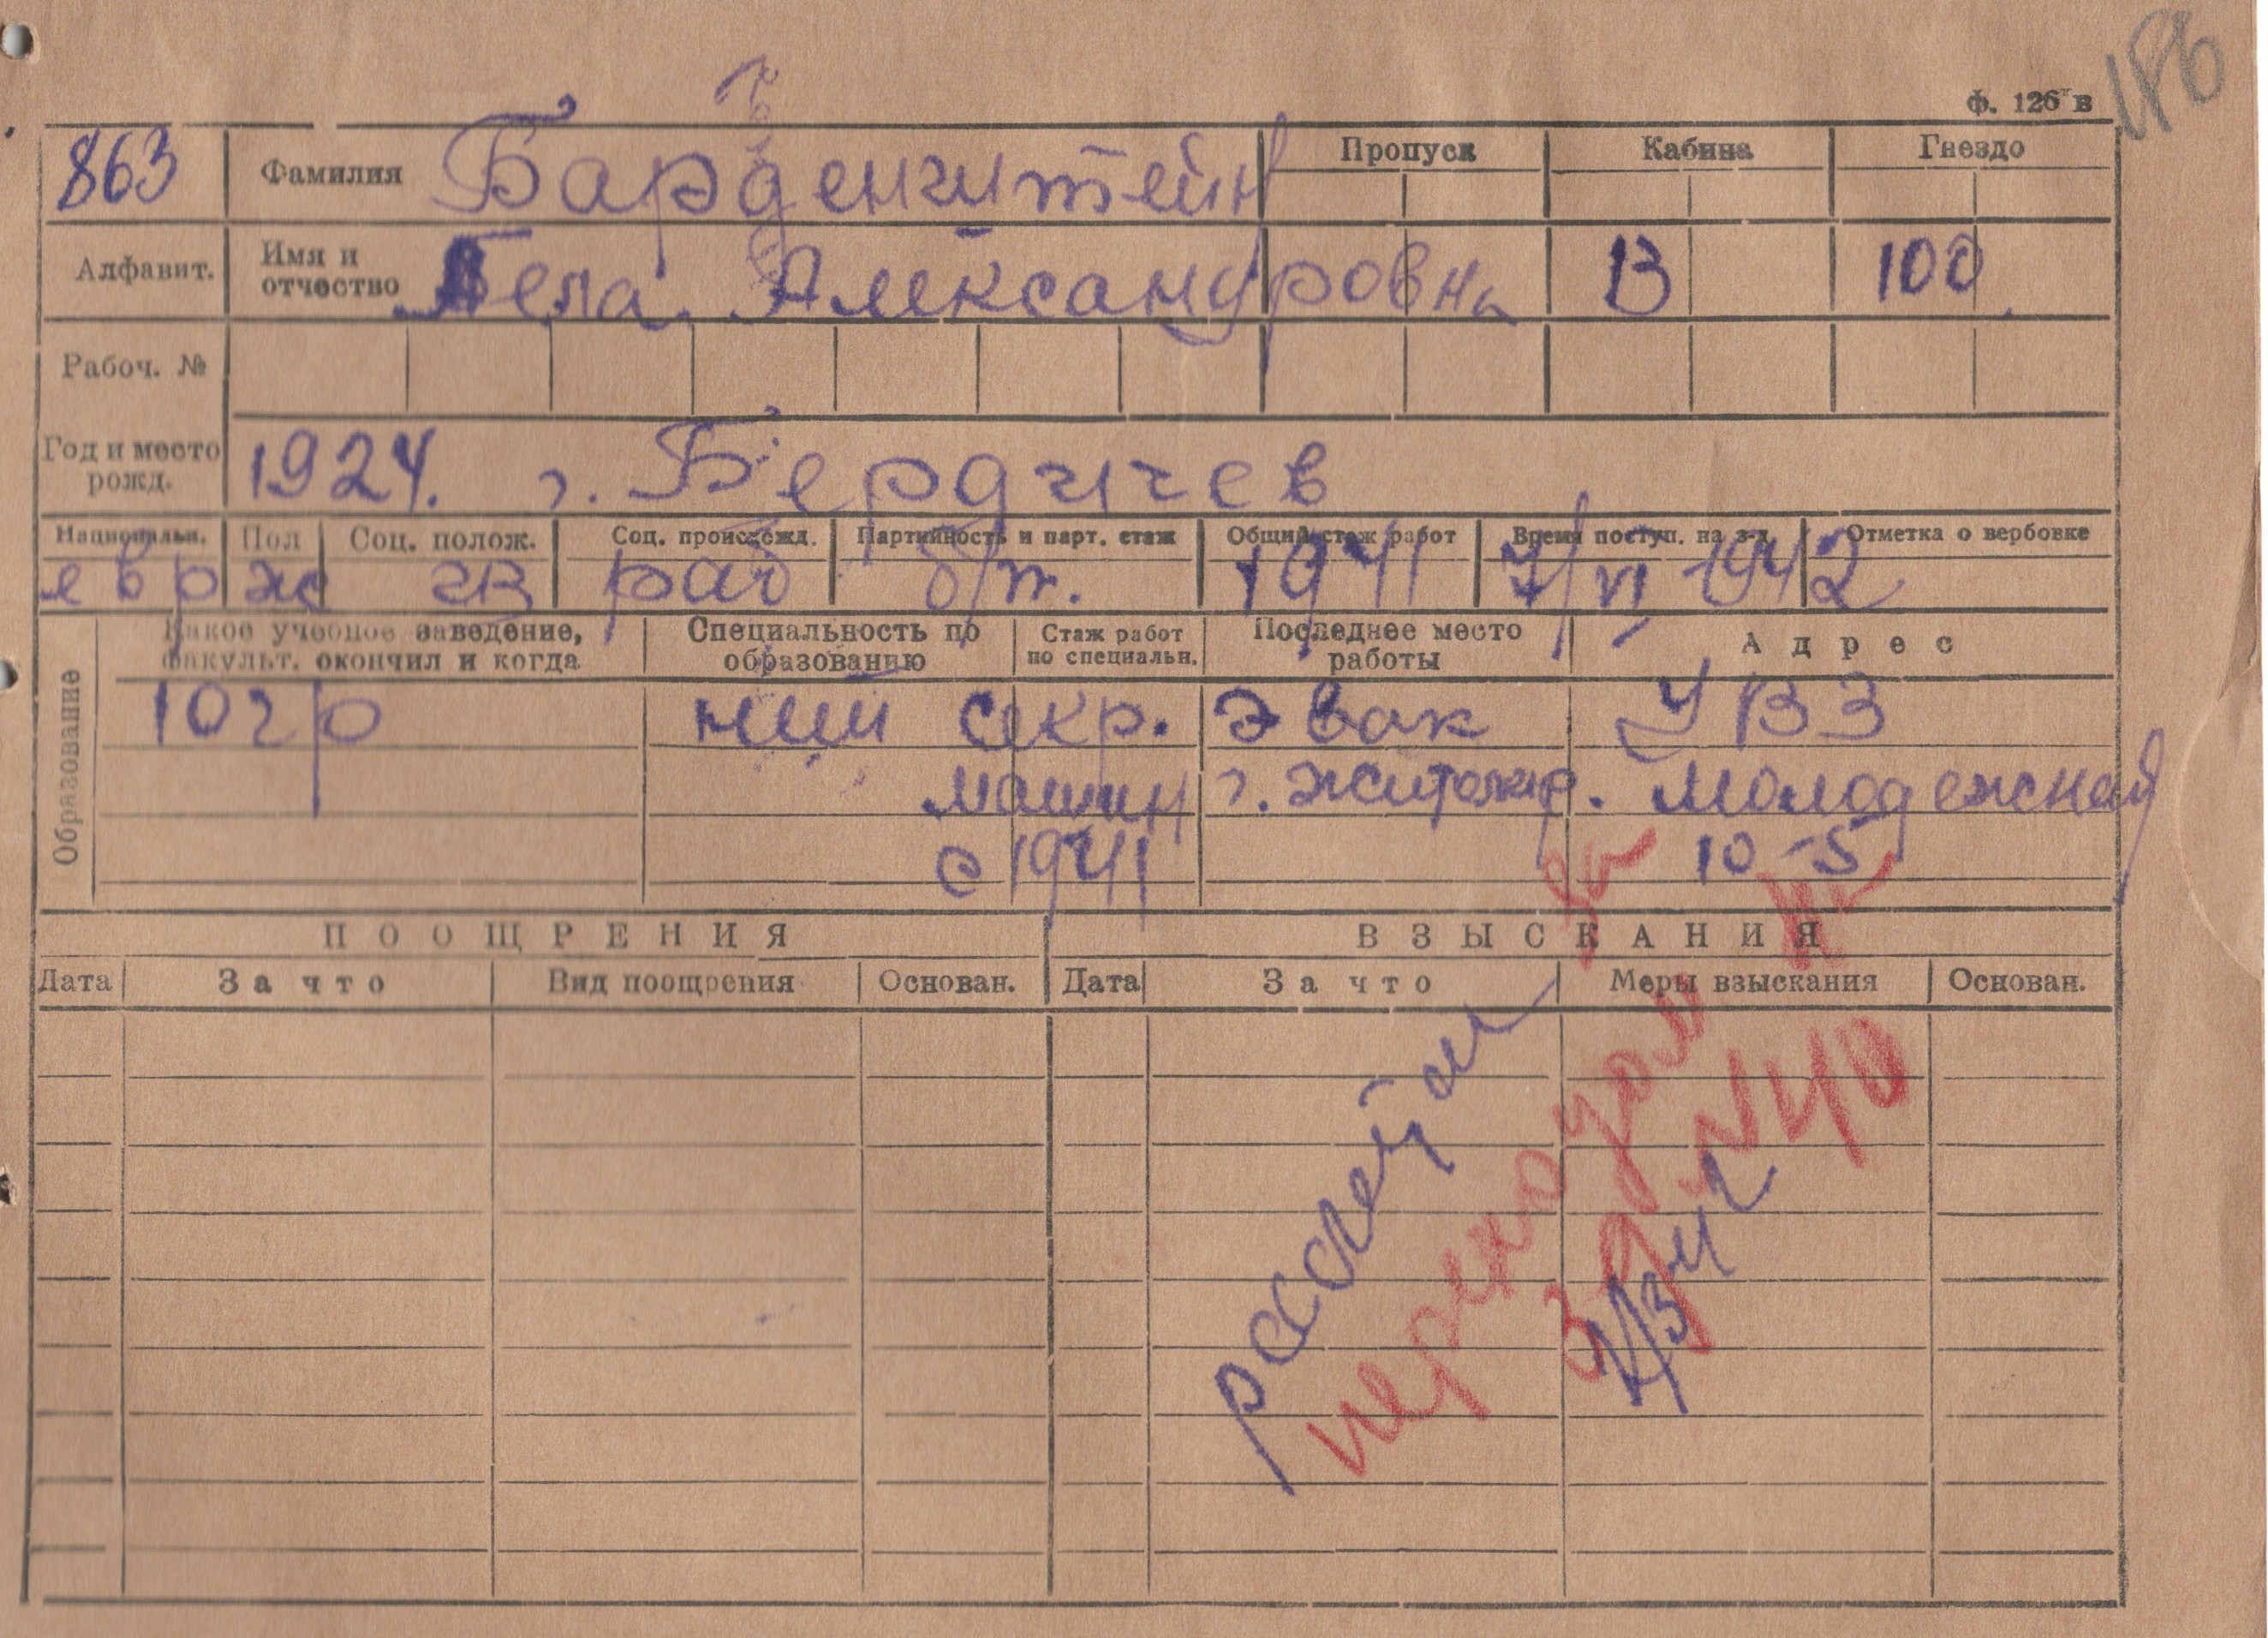 186
Ф. 126 в
863 Фамилия Барденштейн Пропуск Кабина Гнездо
Алфавит. Имя и отчество Бела Александровна В 100
Рабоч. №
Год и место рожд. 1924. г. Бердичев
Национальн. Пол Соц. полож. Соц. происхожд. Партийность и парт. стаж Общий стаж работ Время поступ. на з-д Отметка о вербовке
евр ж раб б/п. 1941 7/VI 1942
Образование
Какое учебное заведение, факульт. окончил и когда Специальность по образованию Стаж работ по специальн. Последнее место работы Адрес
10 гр секр. Эвак УВЗ
машин г. Житомир. Молодежная
с 1941 10-5
ПООЩРЕНИЯ ВЗЫСКАНИЯ
Дата За что Вид поощрения Основан. Дата За что Меры взыскания Основан.
на
N40